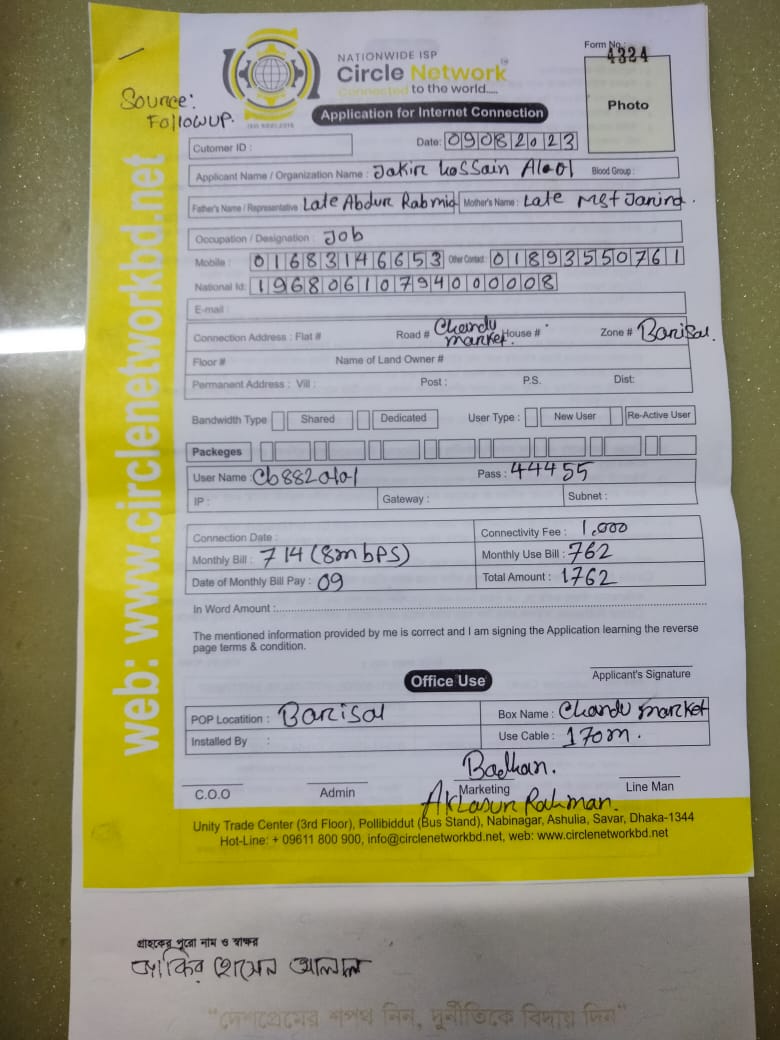 NATIONWIDE ISP
Circle Network
Connected to the world.....
ISO 9001:2015
Form No.: 4324
Photo
Source:
Followup.
Application for Internet Connection
Cutomer ID :
Date: 09082023
Applicant Name / Organization Name : Jakir Hossain Alal Blood Group :
Father's Name / Representative : Late Abdur Rahmid Mother's Name : Late Mst Janina.
Occupation / Designation : Job
Mobile : 01683146653 Other Contact : 01893550761
National Id: 19680610794000008
E-mail :
Connection Address : Flat # Road # Chandu market. House # Zone # Barisal.
Floor # Name of Land Owner #
Permanent Address : Vill : Post : P.S. Dist:
Bandwidth Type Shared Dedicated User Type : New User Re-Active User
Packeges
User Name : Cb882alal Pass : 44455
IP : Gateway : Subnet :
Connection Date : Connectivity Fee : 1,000
Monthly Bill : 714 (8mbps) Monthly Use Bill : 762
Date of Monthly Bill Pay : 09 Total Amount : 1762
In Word Amount :
The mentioned information provided by me is correct and I am signing the Application learning the reverse
page terms & condition.
Applicant's Signature
Office Use
POP Locatition : Barisal Box Name : Chandu market
Installed By : Use Cable : 170m.
Badhan.
C.O.O Admin Marketing Line Man
Aklasur Rahman.
Unity Trade Center (3rd Floor), Pollibiddut (Bus Stand), Nabinagar, Ashulia, Savar, Dhaka-1344
Hot-Line: + 09611 800 900, info@circlenetworkbd.net, web: www.circlenetworkbd.net
web: www.circlenetworkbd.net
গ্রাহকের পুরো নাম ও স্বাক্ষর
জাকির হোসেন আলাল
"দেশপ্রেমের শপথ নিন, দুর্নীতিকে বিদায় দিন"